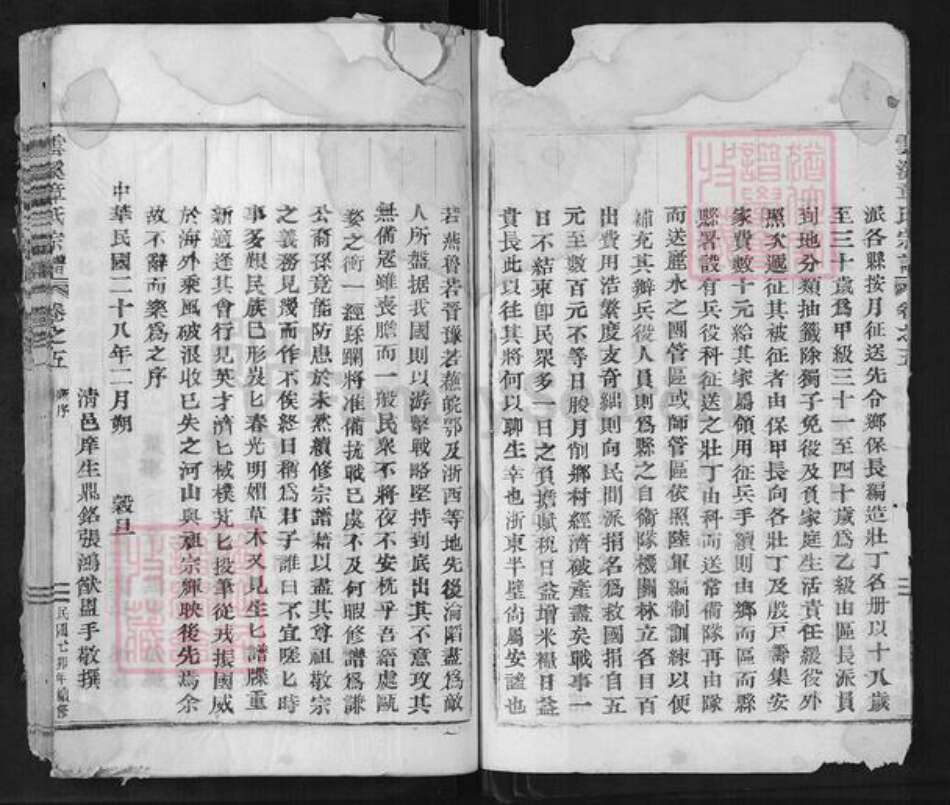 派各縣按月征送先令鄉保長編造壯丁名册以十八歲
至三十歲爲甲級三十一至四十歲爲乙級由區長派員
到地分類抽籤除獨子免役及負家庭生活責任緩役外
照次遞征其被征者由保甲長向各壯丁及殷戸籌集安
家費數十元給其家屬領用征兵手續則由鄉而區而縣
縣署設有兵役科征送之壯丁由科而送常備隊再由隊
而送麗水之團管區或師管區依照陸軍編制訓練以便
補充其辦兵役人員則爲縣之自衛隊機關林立各目百
出費用浩繁度支奇絀則向民間派捐名爲救國捐自五
元至數百元不等日朘月削鄉村經濟破產盡矣戰事一
日不結束卽民衆多一日之負擔賦稅日益增米糧日益
貴長此以往其將何以聊生幸也浙東半壁尙屬安謐也
雲溪章氏宗譜 卷之五
若燕魯若晉豫若蘇皖鄂及浙西等地先後淪陷盡爲敵
人所盤据我國則以游擊戰略堅持到底出其不意攻其
無備寇雖喪膽而一般民衆不將夜不安枕乎吾縉處甌
婺之衝一經蹂躪將准備抗戰已虞不及何暇修譜爲謙
公裔孫竟能防患於未然續修宗譜藉以盡其尊祖敬宗
之義務見幾而作不俟終日稱爲君子誰曰不宜嗟匕時
事多艱民族已形岌匕春光明媚草木又見生匕譜牒重
新適逢其會行見英才濟匕棫樸芃匕投筆從戎振國威
於海外乘風破浪收已失之河山與祖宗輝映後先焉余
故不辭而樂爲之序
中華民國二十八年二月朔 穀旦
清邑庠生鼎銘張鴻猷盥手敬撰
雲溪章氏宗譜 卷之五 序 民國己卯年續修